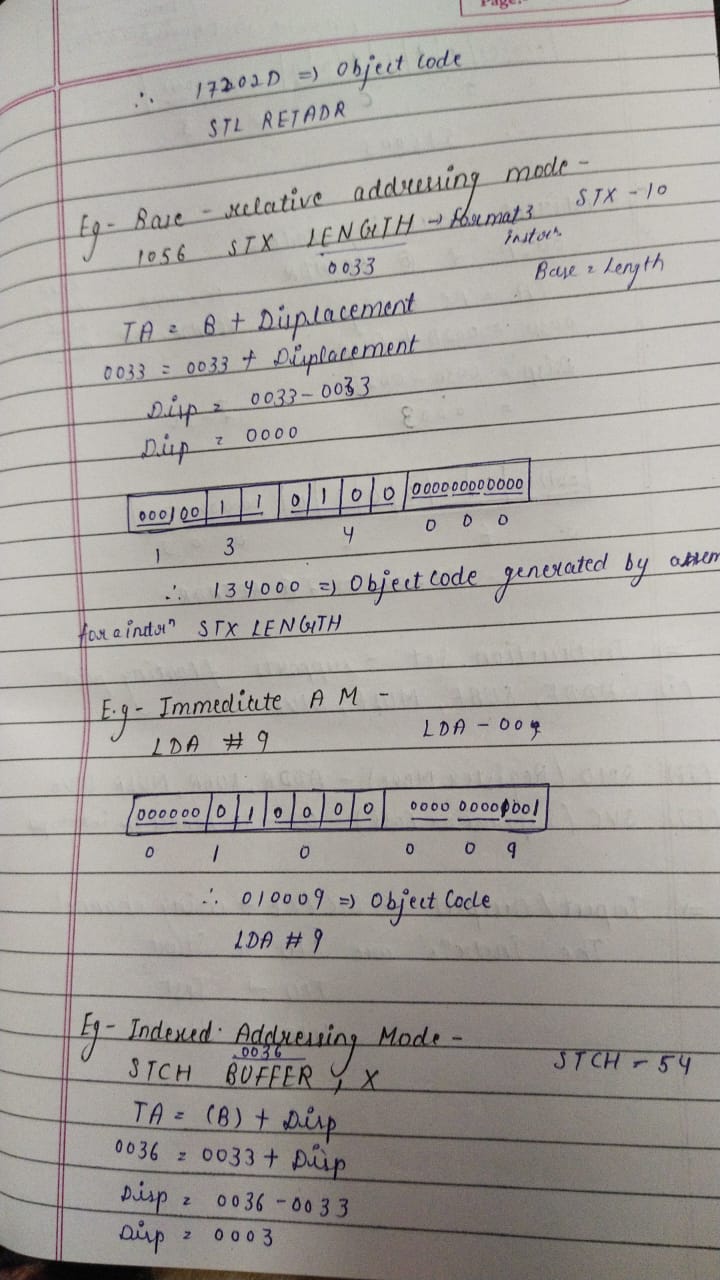 Page:
∴ 17202D => Object Code
STL RETADR
Eg- Base - relative addressing mode -
1056 STX LENGTH → Format 3 instrn STX - 10
0033 Base = Length
TA = B + Displacement
0033 = 0033 + Displacement
Disp = 0033 - 0033
Disp = 0000
000100 1 1 0 1 0 0 000000000000
1 3 4 0 0 0
∴ 134000 => Object Code generated by assem
for a instrn STX LENGTH
E.g- Immediate A M -
LDA # 9 LDA - 00
000000 0 1 0 0 0 0 0000 0000 1001
0 1 0 0 0 9
∴ 010009 => Object Code
LDA # 9
Eg- Indexed Addressing Mode -
0036
STCH BUFFER, X STCH - 54
TA = (B) + Disp
0036 = 0033 + Disp
Disp = 0036 - 0033
Disp = 0003